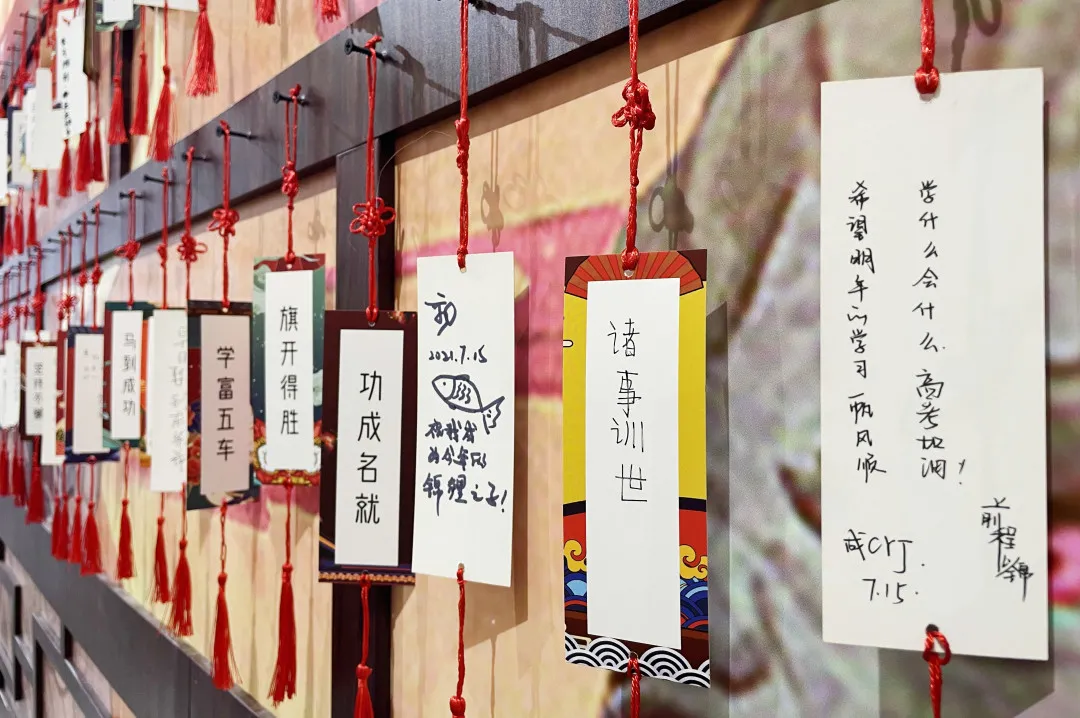 坚持不懈
马到成功
学富五车
旗开得胜
功成名就
2021.7.15
祝我成
为今年的
锦鲤之子!
诸事训世
学什么会什么.高考加油!
希望明年的学习一帆风顺
前程似锦
CrJ.
7.15.